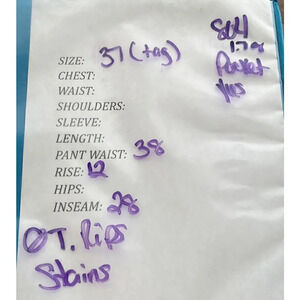 SIZE: 37 (tag)
CHEST:
WAIST:
SHOULDERS:
SLEEVE:
LENGTH:
PANT WAIST: 38
RISE: 12
HIPS:
INSEAM: 28
Rips
Stains